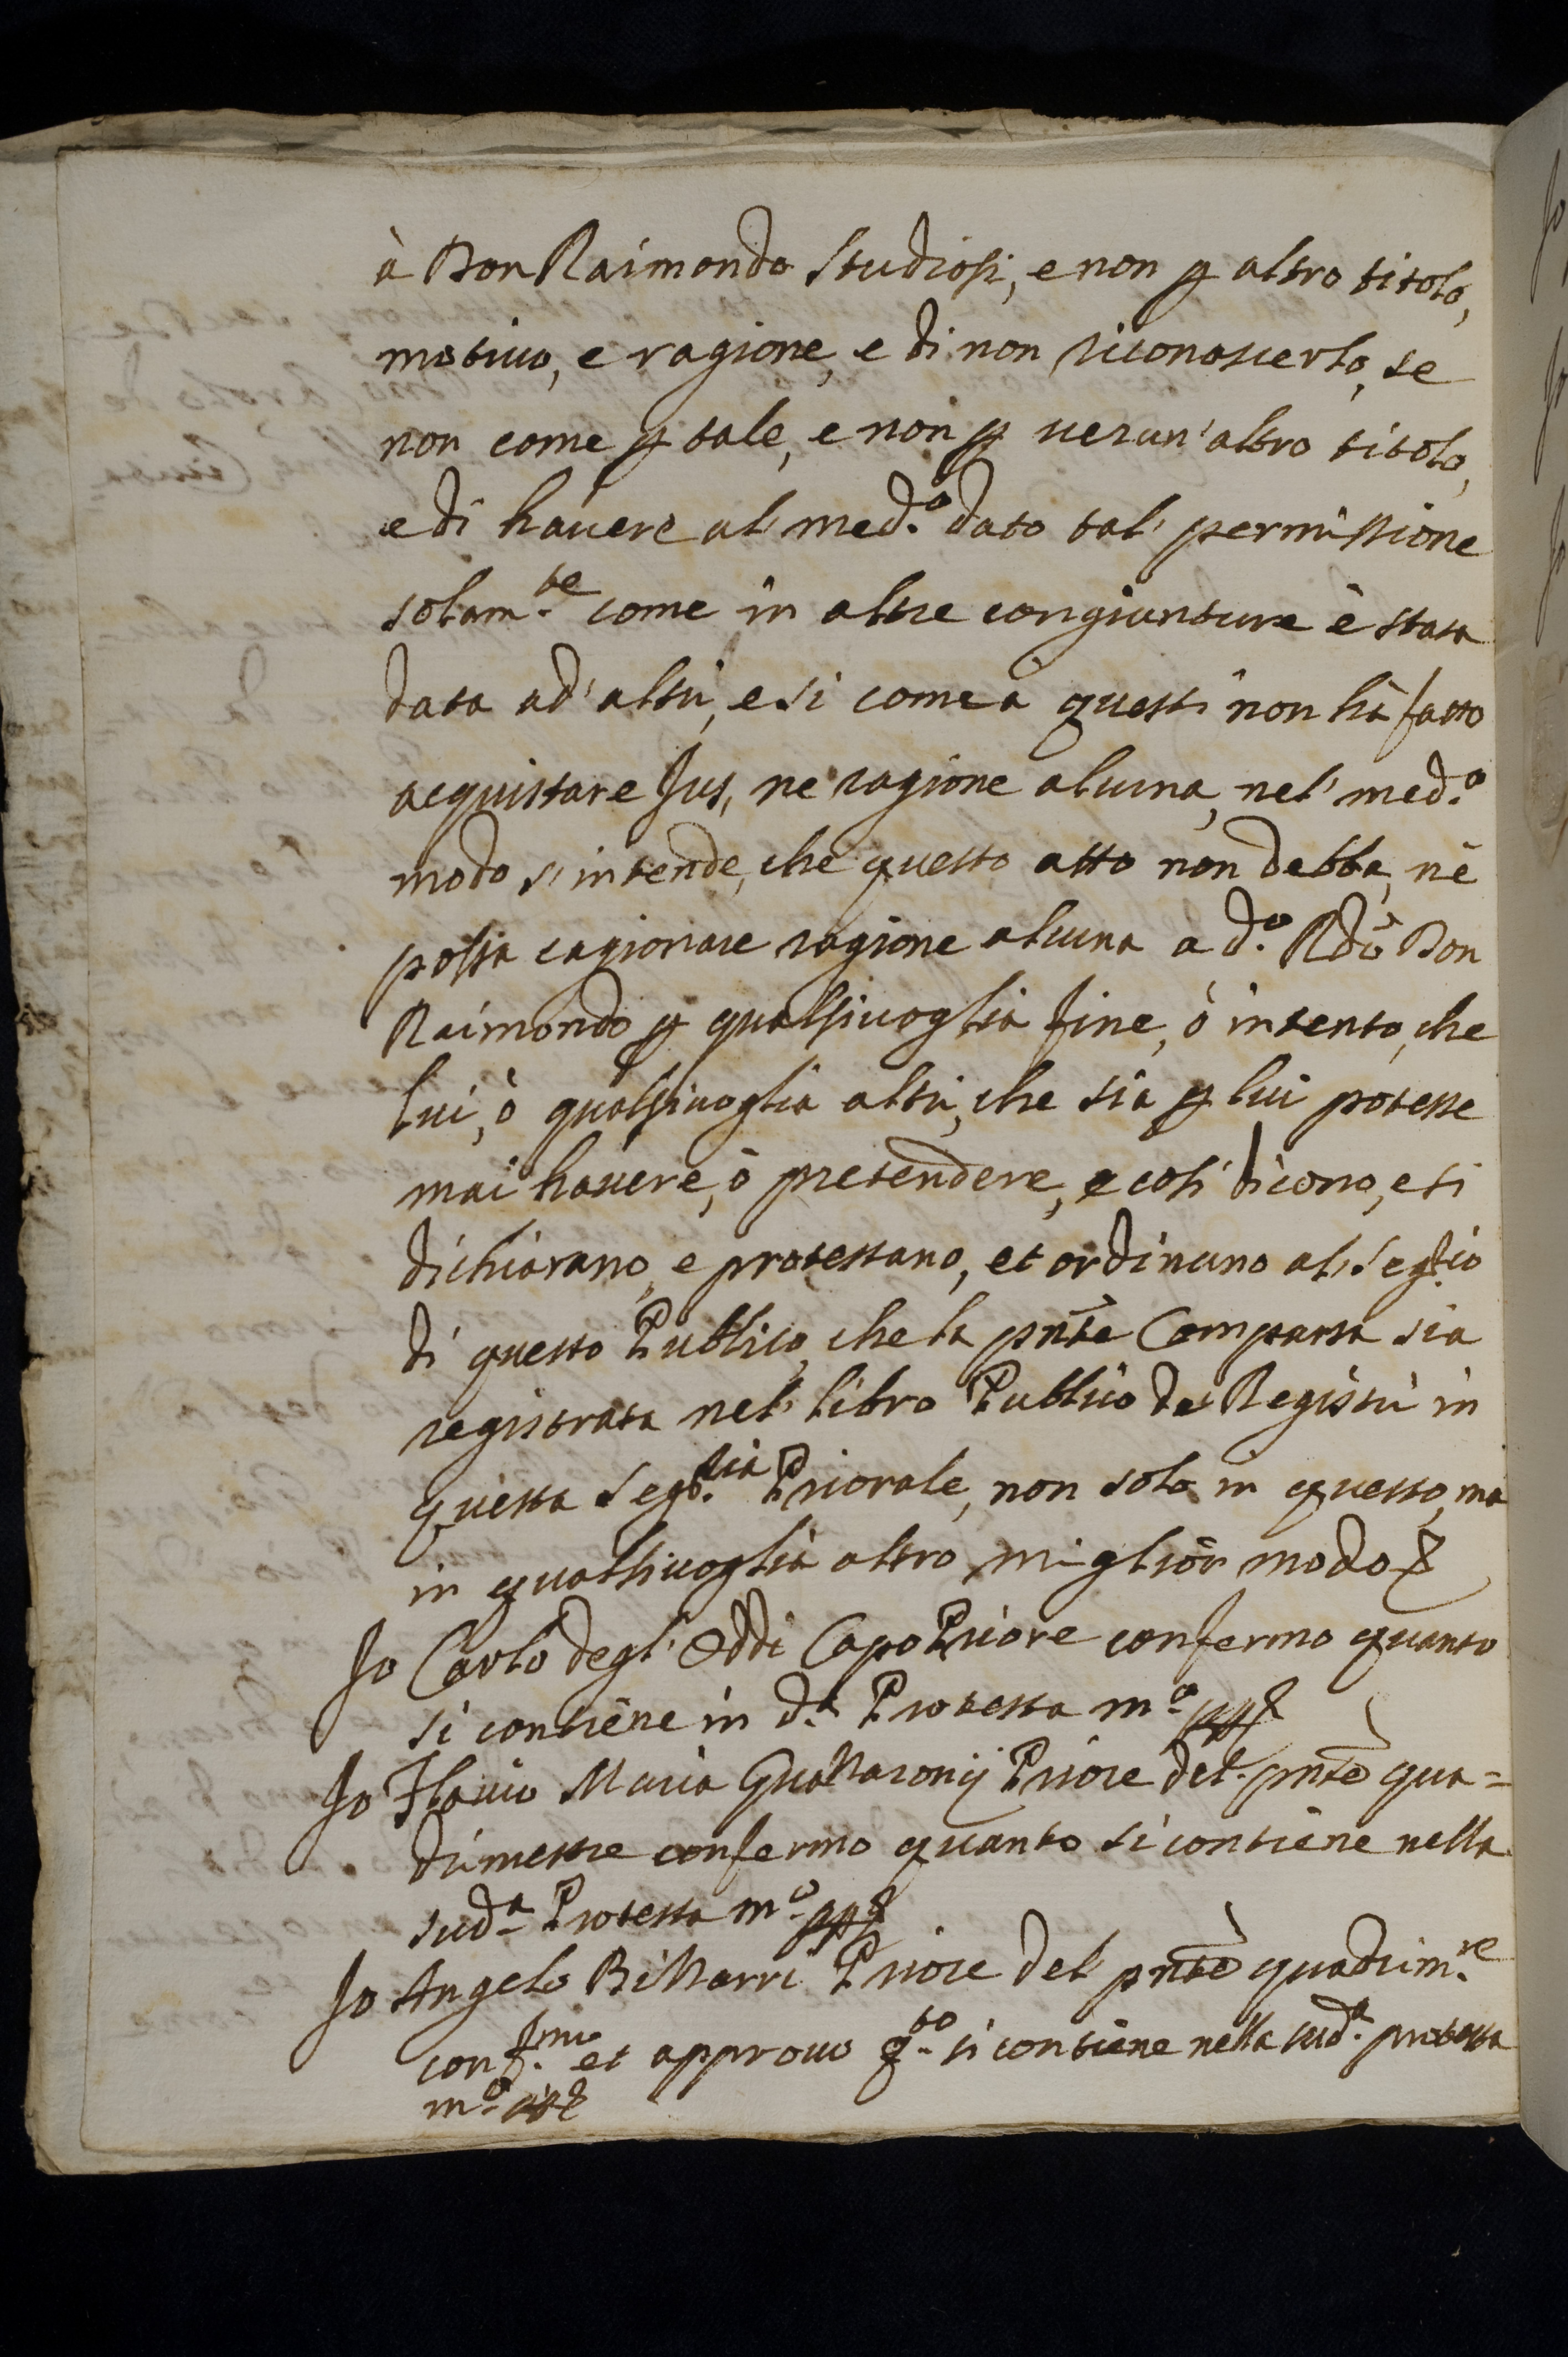 à Don Raimondo Studiosi, e non ꝑ altro titolo,
motiuo, e ragione, e di non riconoscerlo, se
non come ꝑ tale, e non ꝑ uerun' altro titolo,
e di hauere al med.º dato tal' permissione
solam.te come in altre congiunture è stata
data ad' altri, e si come à questi non hà fatto
acquistare Jus, ne ragione alcuna, nel' med.º
modo s'intende, che questo atto non debba, nè
possa cagionare ragione alcuna a d.º Rdō Don
Raimondo ꝑ qualsiuoglia fine, ò intento, che
lui, ò qualsiuoglia altri, che sia ꝑ lui potesse
mai hauere, ò pretendere, e così dicono, e si
dichiarano, e protestano, et ordinano al' Segrio
di questo Publico, che la pñte Comparsa sia
registrata nel' libro Publico de Registri in
questa Seg.ria Priorale, non solo in questo, ma
in qualsiuoglia altro miglior modo
Jo Carlo degl' Oddi Capo Priore confermo quanto
si contiene in d.ª Protesta m.º ppª
Jo Flauio Maria Gualtaronij Priore del pñte qua=
drimestre confermo quanto si contiene nella
sud.ª Protesta m.º ppª
Jo Angelo Priore del pñte quadrim.re
conf.mo et approuo q.to si contiene nella sud.ª protesta
m.º